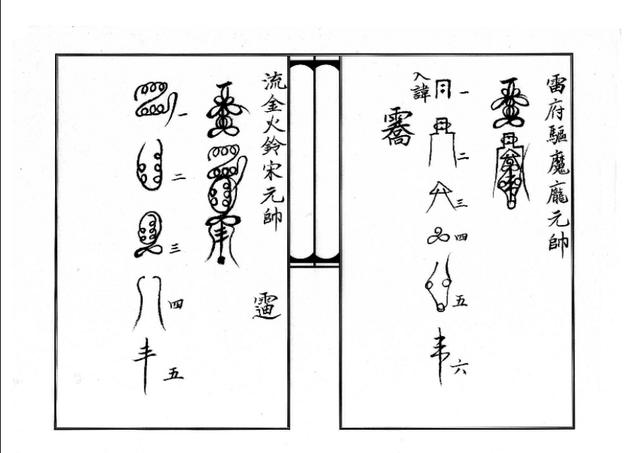 雷府驅魔龐元帥
一
二
三
四
五
六
入諱
流金火鈴宋元帥
一
二
三
四
五